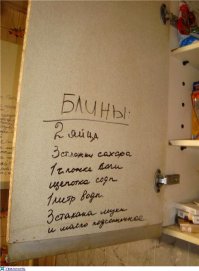 БЛИНЫ.
2 яйца
3 ст ложки сахара
1 ч ложке соли
щепотка соды
1 литр воды
3 стакана муки
и масло подсолнечное